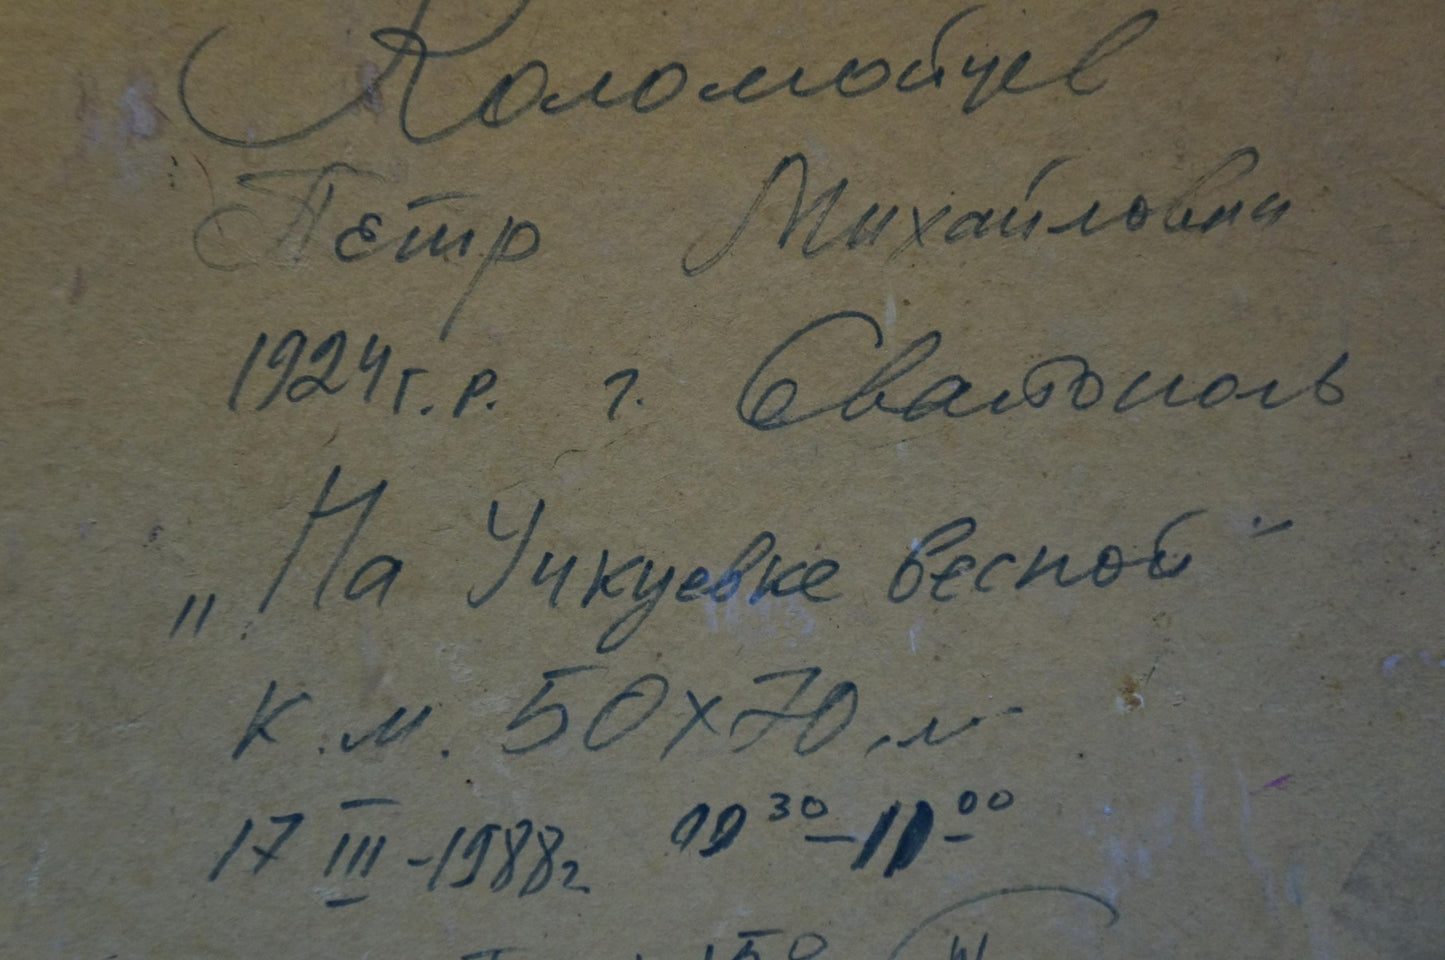 Коломойцев
Пётр Михайлович
1924 г.р. г. Севастополь
„На Учкуевке весной"
к.м. 50х70
17 III - 1988г 09 30 – 11 00